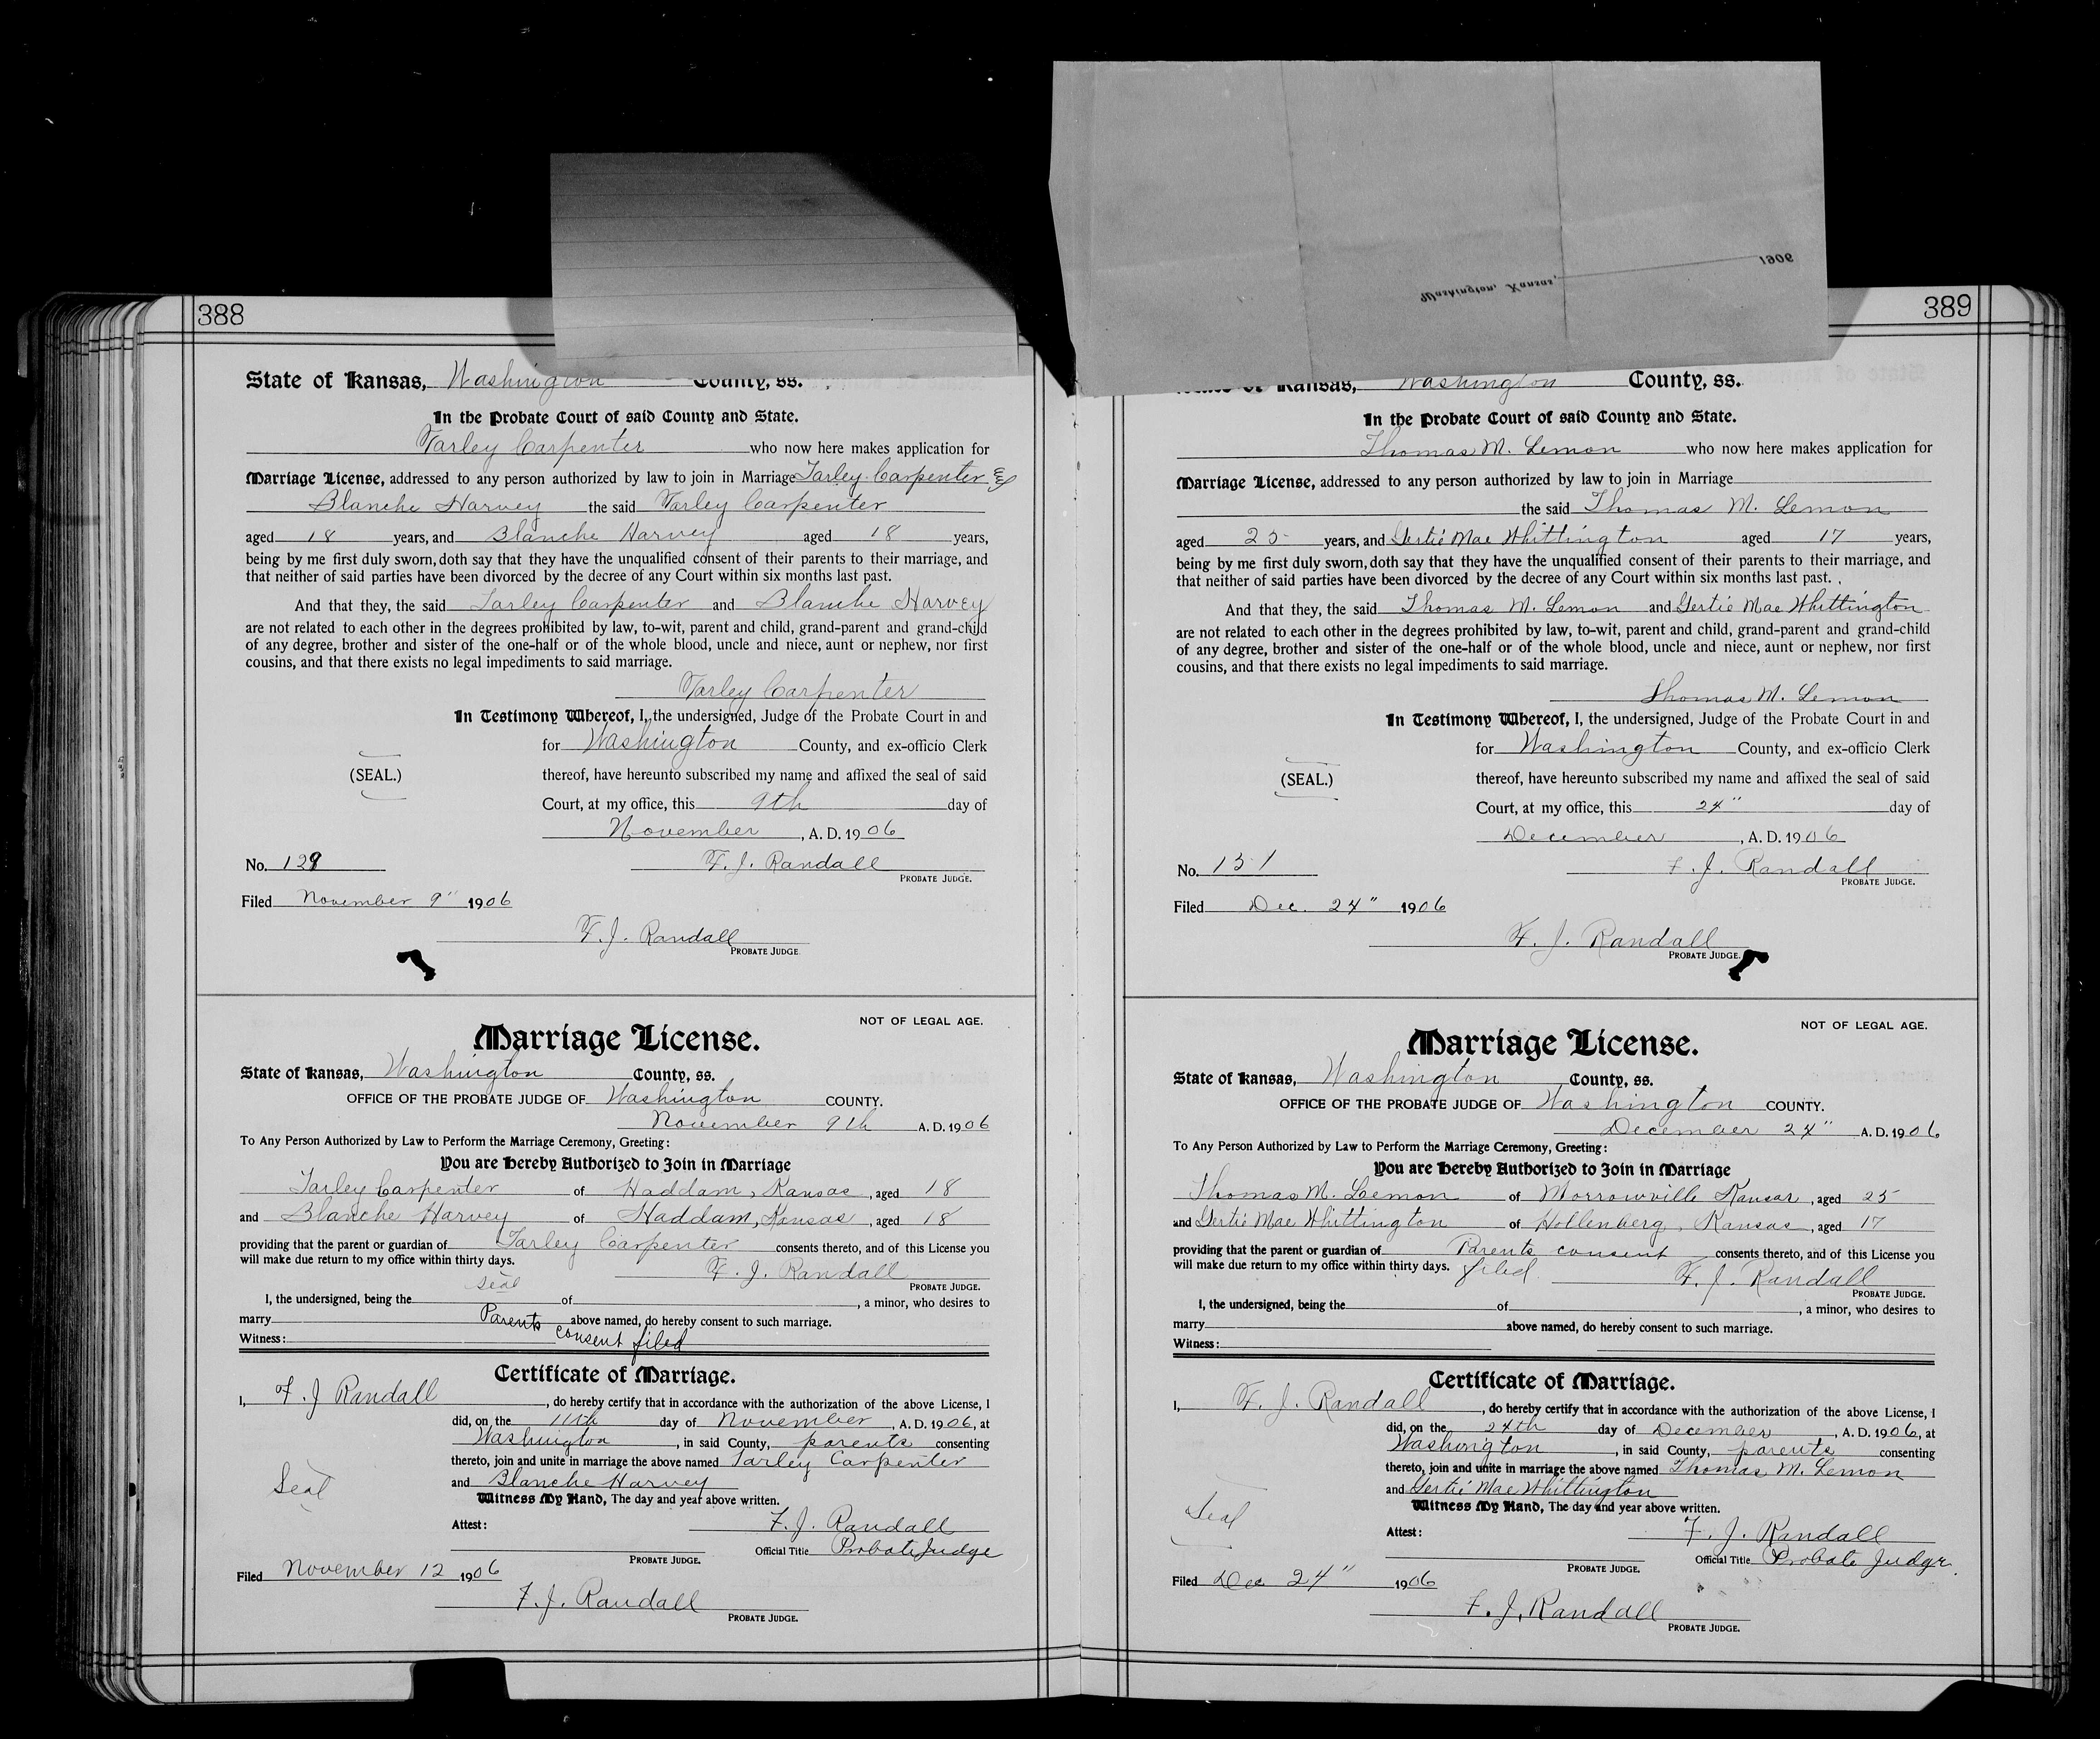 388
State of Kansas, Washington County, ss.
In the Probate Court of said County and State.
Farley Carpenter who now here makes application for
Marriage License, addressed to any person authorized by law to join in Marriage Farley Carpenter &
Blanche Harvey the said Farley Carpenter
aged 18 years, and Blanche Harvey aged 18 years,
being by me first duly sworn, doth say that they have the unqualified consent of their parents to their marriage, and
that neither of said parties have been divorced by the decree of any Court within six months last past.
And that they, the said Farley Carpenter and Blanche Harvey
are not related to each other in the degrees prohibited by law, to-wit, parent and child, grand-parent and grand-child
of any degree, brother and sister of the one-half or of the whole blood, uncle and niece, aunt or nephew, nor first
cousins, and that there exists no legal impediments to said marriage.
Farley Carpenter
In Testimony Whereof, I, the undersigned, Judge of the Probate Court in and
for Washington County, and ex-officio Clerk
(SEAL.) thereof, have hereunto subscribed my name and affixed the seal of said
Court, at my office, this 9th day of
November, A. D. 1906
No. 129 F. J. Randall
PROBATE JUDGE.
Filed November 9" 1906
F. J. Randall
PROBATE JUDGE
NOT OF LEGAL AGE.
Marriage License.
State of Kansas, Washington County, ss.
OFFICE OF THE PROBATE JUDGE OF Washington COUNTY.
November 9th A. D. 1906
To Any Person Authorized by Law to Perform the Marriage Ceremony, Greeting:
You are Hereby Authorized to Join in Marriage
Farley Carpenter of Haddam, Kansas, aged 18
and Blanche Harvey of Haddam, Kansas, aged 18
providing that the parent or guardian of Farley Carpenter consents thereto, and of this License you
will make due return to my office within thirty days. F. J. Randall
seal PROBATE JUDGE.
I, the undersigned, being the of , a minor, who desires to
marry Parents above named, do hereby consent to such marriage.
Witness: consent filed
Certificate of Marriage.
I, F. J Randall, do hereby certify that in accordance with the authorization of the above License, I
did, on the 11th day of November, A. D. 1906, at
Washington, in said County, parents consenting
thereto, join and unite in marriage the above named Farley Carpenter
Seal and Blanche Harvey
Witness My Hand, The day and year above written.
Attest: F. J. Randall
PROBATE JUDGE. Official Title Probate Judge
Filed November 12 1906
F. J. Randall
PROBATE JUDGE.
1906
Washington, Kansas,
389
State of Kansas, Washington County, ss.
In the Probate Court of said County and State.
Thomas M. Lemon who now here makes application for
Marriage License, addressed to any person authorized by law to join in Marriage
the said Thomas M. Lemon
aged 25 years, and Gertie Mae Whittington aged 17 years,
being by me first duly sworn, doth say that they have the unqualified consent of their parents to their marriage, and
that neither of said parties have been divorced by the decree of any Court within six months last past.
And that they, the said Thomas M. Lemon and Gertie Mae Whittington
are not related to each other in the degrees prohibited by law, to-wit, parent and child, grand-parent and grand-child
of any degree, brother and sister of the one-half or of the whole blood, uncle and niece, aunt or nephew, nor first
cousins, and that there exists no legal impediments to said marriage.
Thomas M. Lemon
In Testimony Whereof, I, the undersigned, Judge of the Probate Court in and
for Washington County, and ex-officio Clerk
(SEAL.) thereof, have hereunto subscribed my name and affixed the seal of said
Court, at my office, this 24" day of
December, A. D. 1906
No. 151 F. J. Randall
PROBATE JUDGE.
Filed Dec. 24" 1906
F. J. Randall
PROBATE JUDGE.
NOT OF LEGAL AGE.
Marriage License.
State of Kansas, Washington County, ss.
OFFICE OF THE PROBATE JUDGE OF Washington COUNTY.
December 24" A. D. 1906
To Any Person Authorized by Law to Perform the Marriage Ceremony, Greeting:
You are Hereby Authorized to Join in Marriage
Thomas M. Lemon of Morrowville Kansas, aged 25
and Gertie Mae Whittington of Hollenberg, Kansas, aged 17
providing that the parent or guardian of Parents consent consents thereto, and of this License you
will make due return to my office within thirty days. filed F. J. Randall
PROBATE JUDGE.
I, the undersigned, being the of , a minor, who desires to
marry above named, do hereby consent to such marriage.
Witness:
Certificate of Marriage.
I, F. J. Randall, do hereby certify that in accordance with the authorization of the above License, I
did, on the 24th day of December, A. D. 1906, at
Washington, in said County, parents consenting
thereto, join and unite in marriage the above named Thomas M. Lemon
and Gertie Mae Whittington
Seal Witness My Hand, The day and year above written.
Attest: F. J. Randall
PROBATE JUDGE. Official Title Probate Judge.
Filed Dec 24" 1906
F. J. Randall
PROBATE JUDGE.